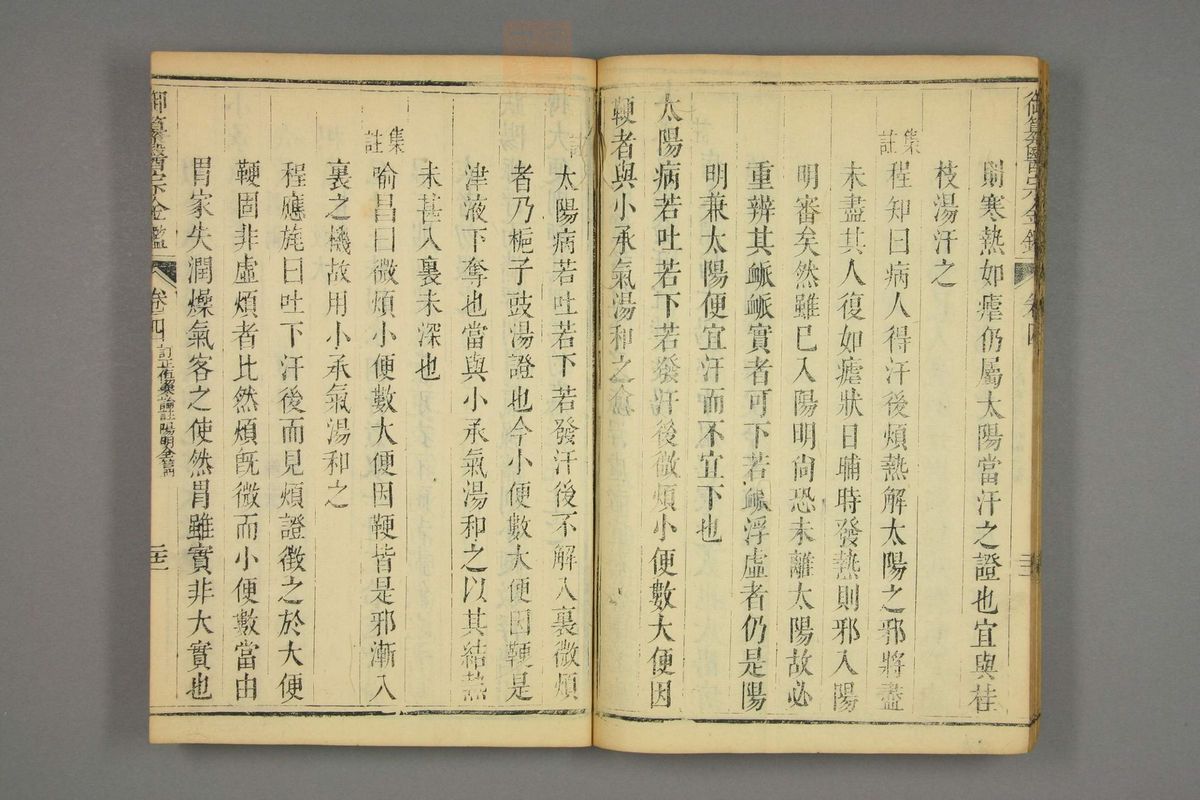 御纂醫宗金鑑 卷四
關寒熱如瘧仍屬太陽當汗之證也宜與桂
枝湯汗之
集註程知曰病人得汗後煩熱解太陽之邪將盡
未盡其人復如瘧狀日晡時發熱則邪入陽
明審矣然雖已入陽明尚恐未離太陽故必
重辨其脈脈實者可下若脈浮虛者仍是陽
明兼太陽便宜汗而不宜下也
太陽病若吐若下若發汗後微煩小便數大便因
鞕者與小承氣湯和之愈
註太陽病若吐若下若發汗後不解入裏微煩
者乃梔子豉湯證也今小便數大便因鞕是
津液下奪也當與小承氣湯和之以其結熱
未甚入裏未深也
集註喻昌曰微煩小便數大便因鞕皆是邪漸入
裏之機故用小承氣湯和之
程應旄曰吐下汗後而見煩證徵之於大便
鞕固非虛煩者比然煩旣微而小便數當由
胃家失潤燥氣客之使然胃雖實非大實也
御纂醫宗金鑑 卷四 訂正傷寒論註陽明全篇